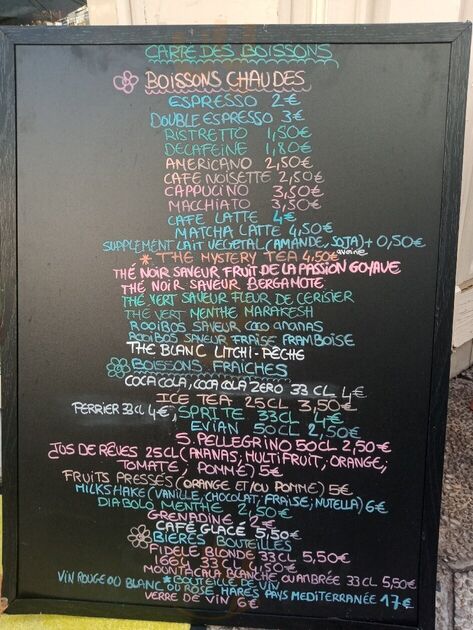 CARTE DES BOISSONS
BOISSONS CHAUDES
ESPRESSO 2€
DOUBLE ESPRESSO 3€
RISTRETTO 1,50€
DECAFEINE 1,80€
AMERICANO 2,50€
CAFE NOISETTE 2,50€
CAPPUCINO 3,50€
MACCHIATO 3,50€
CAFE LATTE 4€
MATCHA LATTE 4,50€
SUPPLEMENT LAIT VEGETAL (AMANDE, SOJA) + 0,50€
avoine
* THE MYSTERY TEA 4,50€
THÉ NOIR SAVEUR FRUIT DE LA PASSION GOYAVE
THÉ NOIR SAVEUR BERGAMOTE
THÉ VERT SAVEUR FLEUR DE CERISIER
THÉ VERT MENTHE MARAKESH
ROOIBOS SAVEUR COCO ANANAS
ROOIBOS SAVEUR FRAISE FRAMBOISE
THÉ BLANC LITCHI-PÊCHE
BOISSONS FRAICHES
COCA COLA, COCA COLA ZERO 33 CL 4€
ICE TEA 25CL 3,50€
PERRIER 33CL 4€, SPRITE 33CL 4€
EVIAN 50CL 2,50€
S. PELLEGRINO 50CL 2,50€
JUS DE RÊVES 25CL (ANANAS; MULTIFRUIT; ORANGE;
TOMATE; POMME) 5€
FRUITS PRESSÉS (ORANGE ET/OU POMME) 5€
MILKSHAKE (VANILLE, CHOCOLAT; FRAISE; NUTELLA) 6€
DIABOLO MENTHE 2,50€
GRENADINE 2€
CAFÉ GLACÉ 5,50€
BIÈRES BOUTEILLES
FIDELE BLONDE 33CL 5,50€
1664 33CL 4,50€
MOUNTACALA BLANCHE OU AMBRÉE 33CL 5,50€
* BOUTEILLE DE VIN
VIN ROUGE OU BLANC OU ROSE HARES PAYS MEDITERRANÉE 17€
VERRE DE VIN 6€